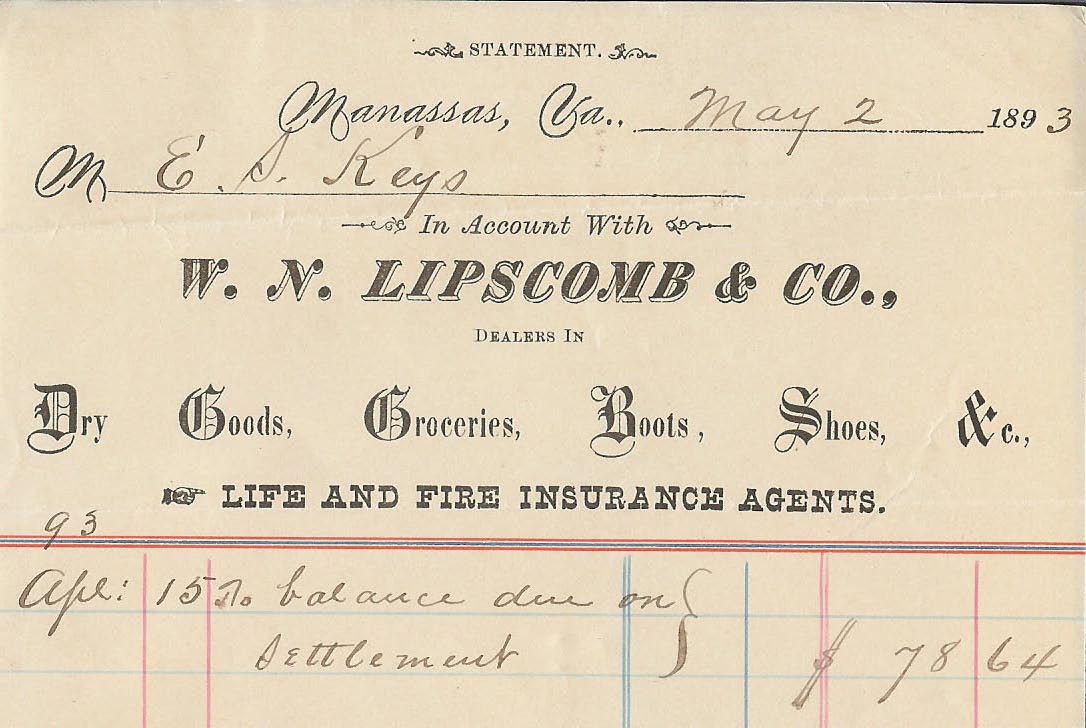 STATEMENT.
Manassas, Va., May 2 1893
M E. S. Keys
In Account With
W. N. LIPSCOMB & CO.,
DEALERS IN
Dry Goods, Groceries, Boots, Shoes, &c.,
LIFE AND FIRE INSURANCE AGENTS.
93
Apl: 15 To balance due on
settlement $ 78 64